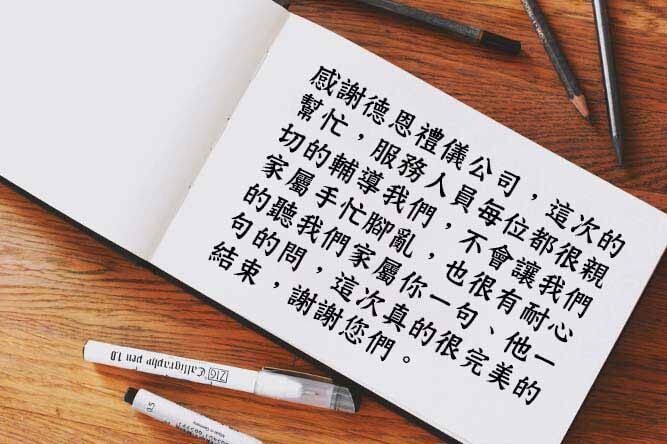 感謝德恩禮儀公司，這次的
幫忙，服務人員每位都很親
切的輔導我們，不會讓我們
家屬手忙腳亂，也很有耐心
的聽我們家屬你一句、他一
句的問，這次真的很完美的
結束，謝謝您們。
ZIG Calligraphy pen 1.0
0.5